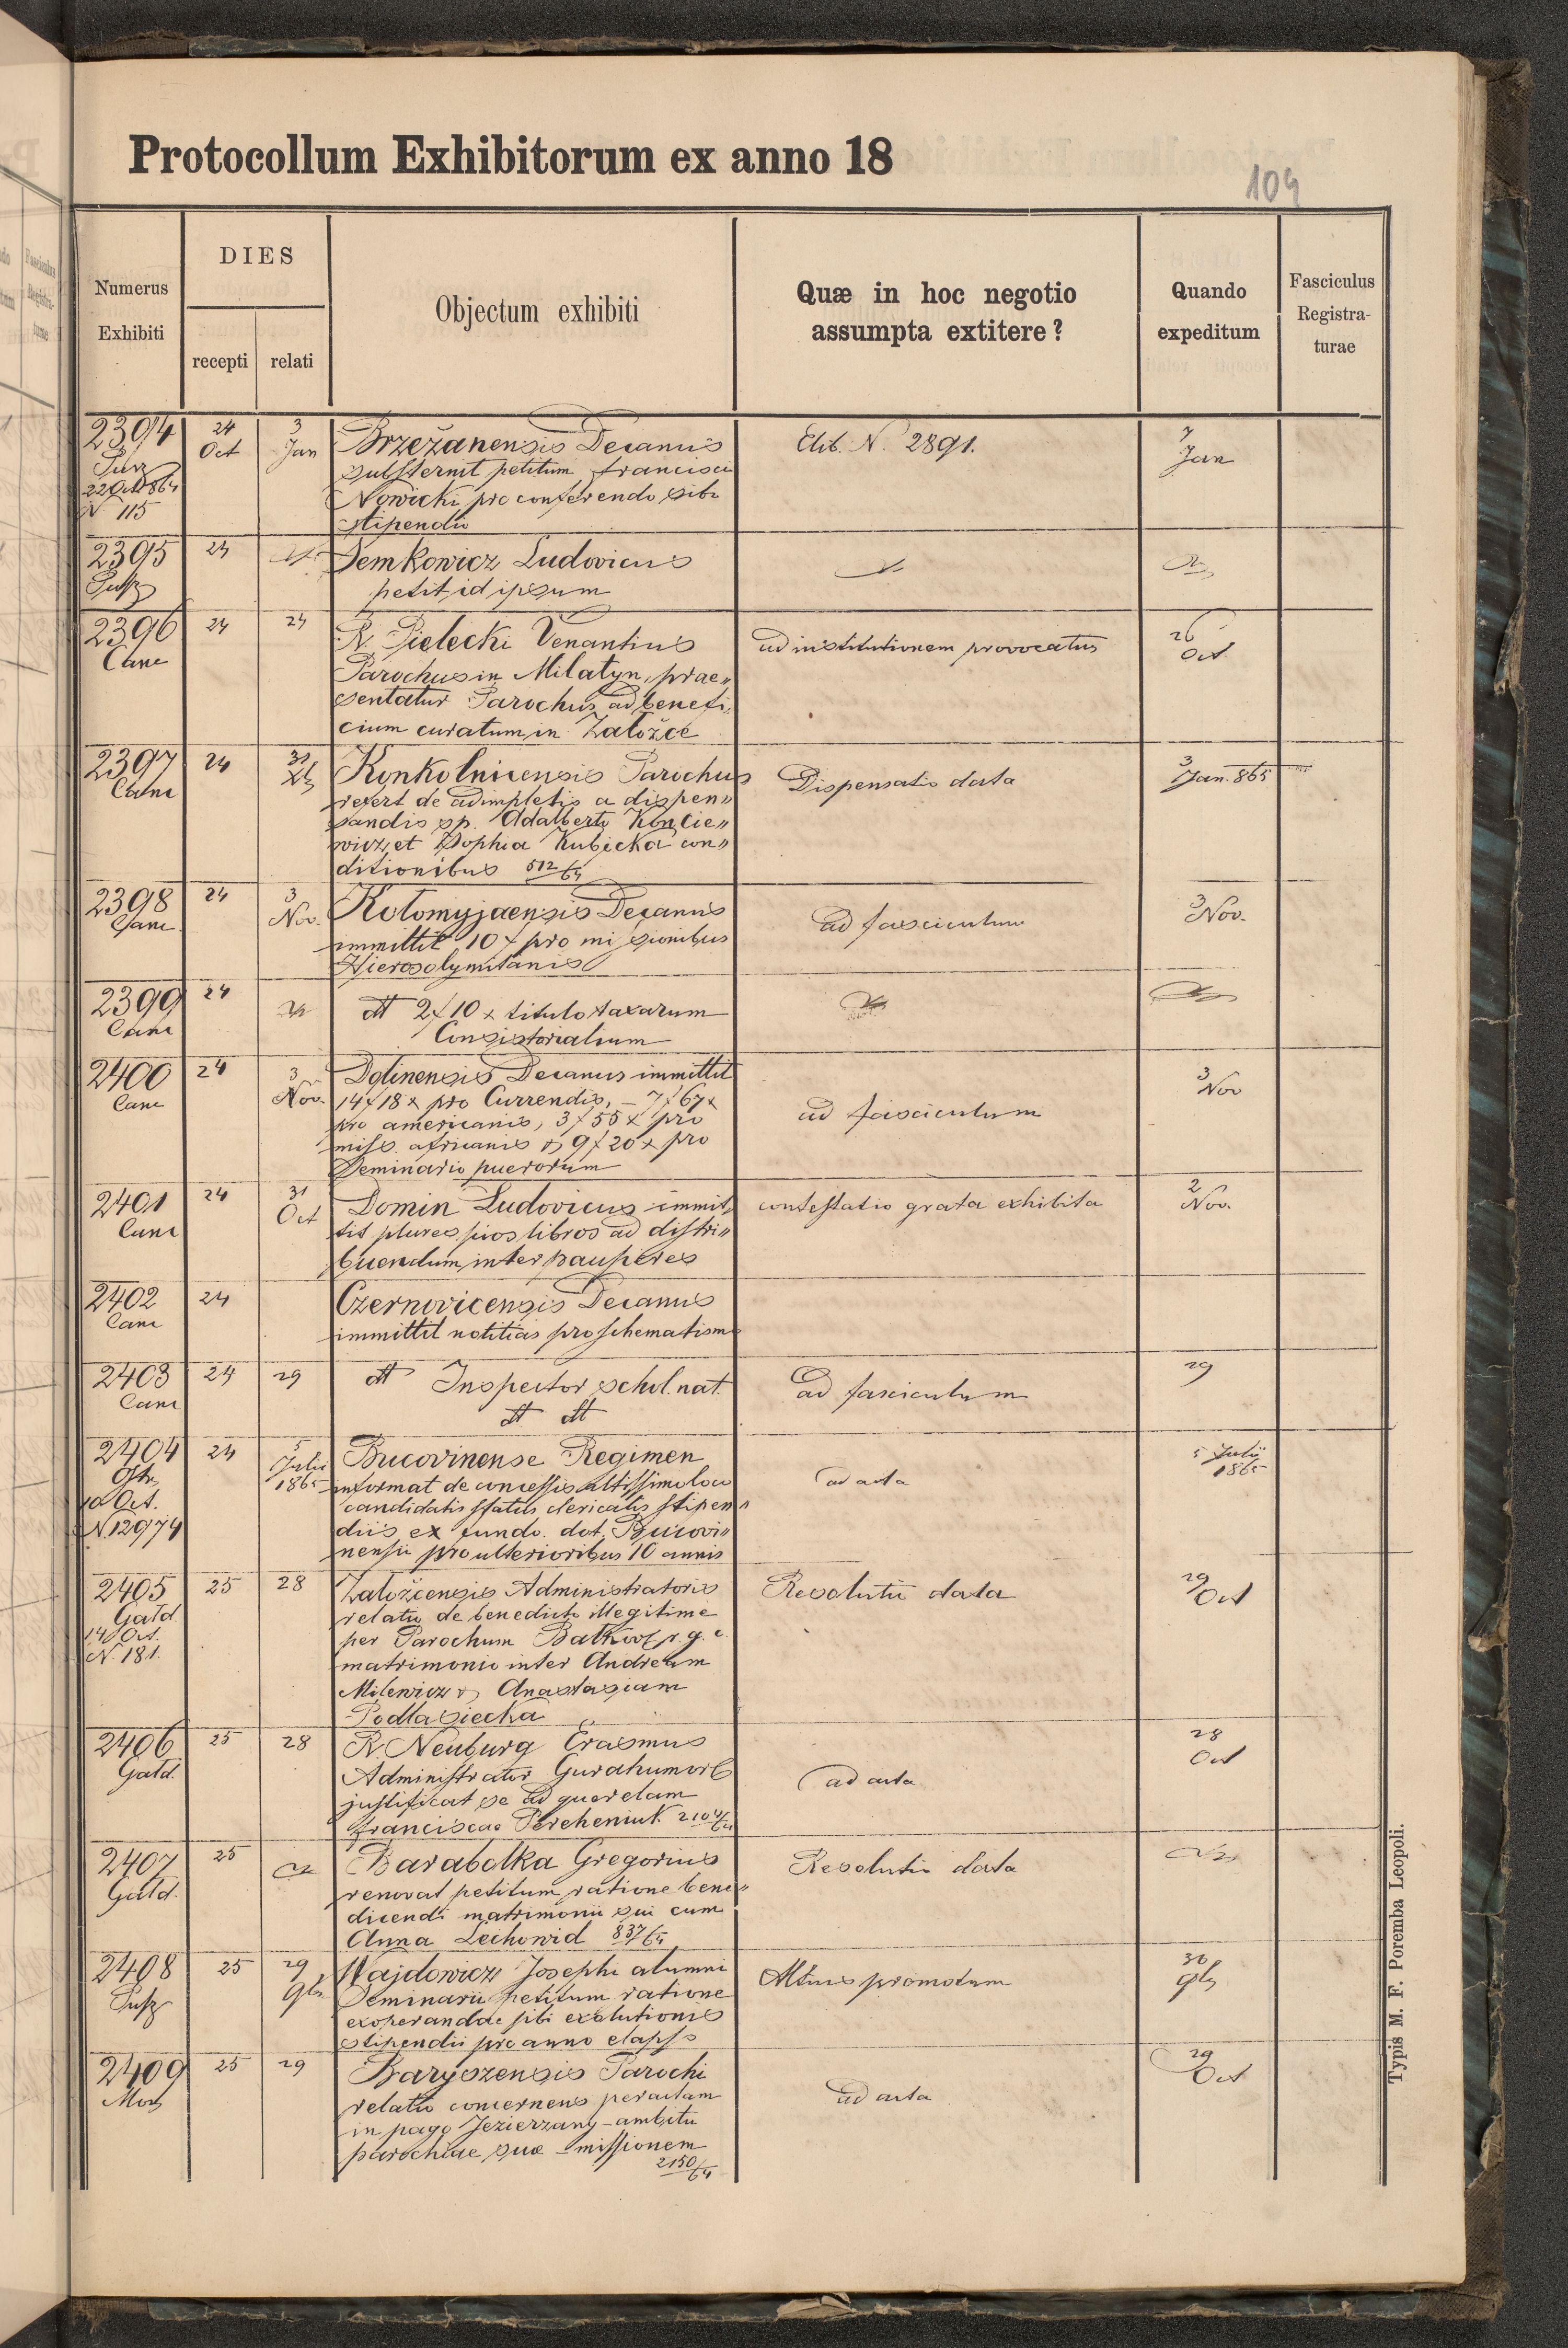 Protocollum Exhibitorum ex anno 18
104
Numerus Exhibiti
DIES
recepti relati
Objectum exhibiti
Quæ in hoc negotio
assumpta extitere?
Quando
expeditum
Fasciculus
Registra-
turae
2394 24 Oct 3 Jan Brzeżanensis Decanus Exib. N. 2891. 7 Jan
substernit petitum Francisci
22 Oct 864 Nowicki pro conferendo sibi
N 115 stipendio
2395 24 Semkowicz Ludovicus
petit id ipsum
2396 24 24 R. Pielecki Venantius ad institutionem provocatus 26 Oct
Canc Parochus in Milatyn, prae„
sentatur Parochus ad benefi„
cium curatum in Załoźce
2397 24 31 Xb Konkolnicensis Parochus Dispensatio data 3 Jan. 865
Canc refert de adimpletis a dispen„
sandis sp. Adalberto Koncie„
wicz, et Sophia Kubicka con„
ditionibus 512/64
2398 24 3 Nov. Kołomyjaensis Decanus ad fasciculum 3 Nov.
Canc immittit 10 f pro missionibus
Hierosolymitanis
2399 24 dt 2 f 10 x titulo taxarum
Canc Consistorialium
2400 24 3 Nov. Dolinensis Decanus immittit 3 Nov
Canc 14 f 18 x pro Currendis, – 7 f 67 x
pro americanis, 3 f 55 x pro ad fasciculum
miss. africanis & 9 f 20 x pro
Seminario puerorum
2401 24 31 Oct Domin Ludovicus immit„ contestatio grata exhibita 2 Nov.
Canc tit plures pios libros ad distri„
buendum inter pauperes
2402 24 Czernovicensis Decanus
Canc immittit notitias pro schematismo
2403 24 29 dt Inspector schol. nat. ad fasciculum 29
Canc dt dt
2404 24 5 Julii 1865 Bucovinense Regimen ad acta 5 Julii 1865
informat de concessis altissimo loco
10 Oct. candidatis status clericalis stipen„
N. 12974 diis ex fundo. dot. Bucovi„
nensii pro ulterioribus 10 annis
2405 25 28 Załoźcensis Administratoris Resolutio data 29 Oct
Gald relatio de benedicto illegitime
14 Oct. per Parochum r. g. c.
N. 181. matrimonio inter Andream
Milewicz & Anastasiam
Podlasiecka
2406 25 28 R. Neuburg Erasmus 28 Oct
Gald. Administrator Gurahumor
justificat se ad querelam ad acta
Franciscae Percheniuk 2104/64
2407 25 Barabolka Gregorius Resolutio data
Gald. renovat petitum ratione bene„
dicendi matrimonii sui cum
Anna Lechowid 837/64
2408 25 29 9b. Wajdowicz Josephi alumni Altius promotum 30 9b
Seminarii petitum ratione
exoperandae sibi exolutionis
stipendii pro anno elapso
2409 25 29 Baryszensis Parochi ad acta 29 Oct
relatio concernens peractam
in pago Jezierzany – ambitu
parochiae suae – missionem
2150/64
Typis M. F. Poremba Leopoli.